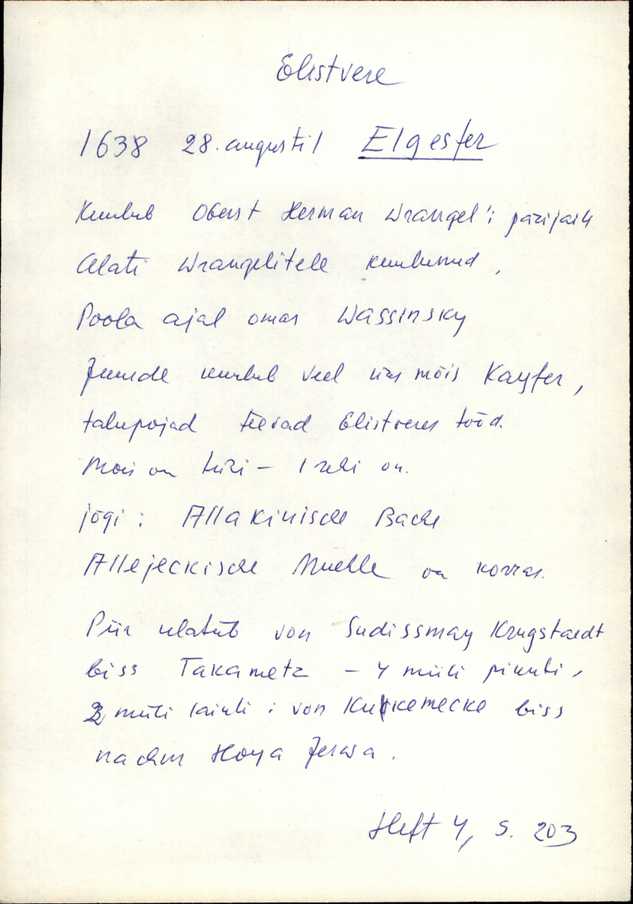 Elistvere
1638 28. augustil Elgesfer
Kuulub Oberst Herman Wrangel'i pärijaile
Alati Wrangelitele kuulunud,
Poola ajal omas Wassinsky
Juurde kuulub veel üks mõis Kayfer,
talupojad teevad Elistveres tööd.
Mõis on - on.
jõgi: Allakiwische Bache
Allejeckische Muehle on korras.
Piir ulatub von Sudissmay Krugstaedt
biss Takametz - 4 miili pikuti,
2 miili laiuti: von Kurkemecke biss
nachm Hoya Jerwa.
Heft 4, s. 203